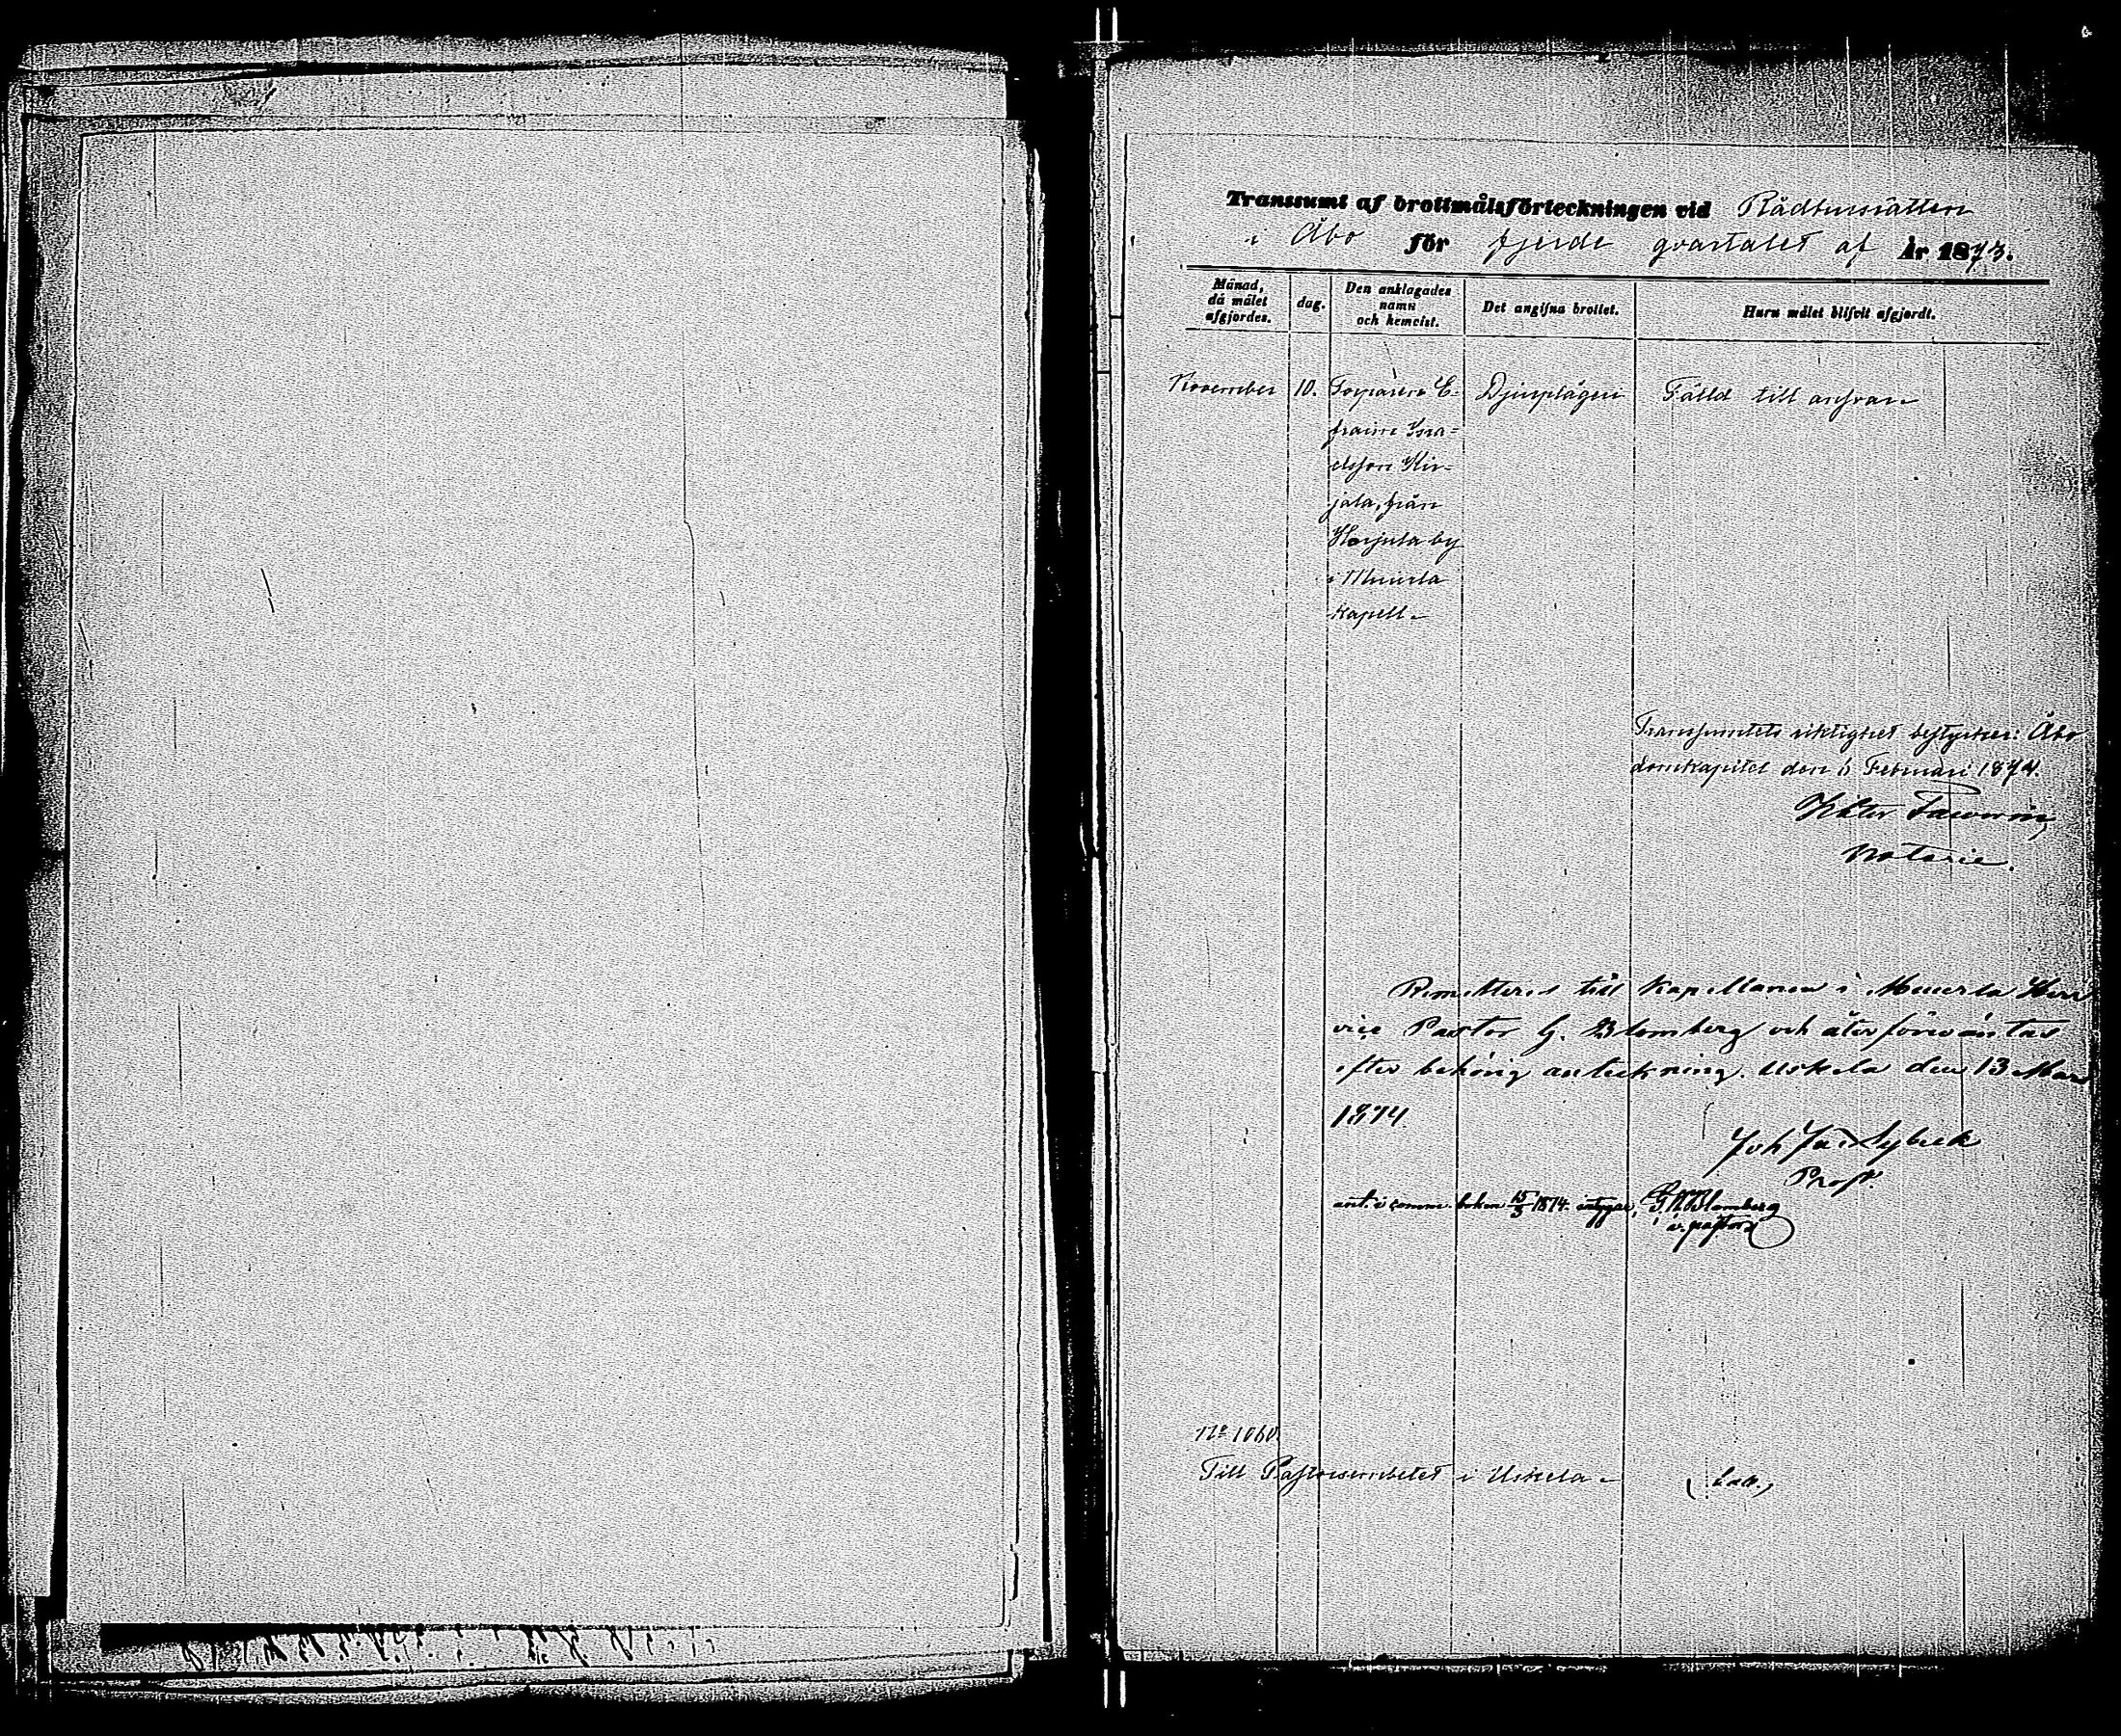 Transsumt af brottmålsförteckningen vid Rådhusrätten
i Åbo för fjerde qvartalet af År 1873.
Månad, då målet afgjordes.
dag.
Den anklagades namn och hemvist.
Det angifna brottet.
Huru målet blifvit afgjordt.
November 10. Torparen E- Djurplågeri Fälld till ansvar.
fraim Isra-
elsson Kir-
jala, från
Harjula by
i Muurla
kapell.
Transsumtets riktighet bestyrker: Åbo
domkapitel den 5 Februari 1874.
Viktor
Notarie.
Remitteras till Kapellanen i Muurla Herr
vice Pastor G. Blomberg och åter förväntas
efter behörig anteckning. Uskela den 13 Mars
1874.
Joh
Prost.
ant. i comm. boken 15/3 1874. intygar, G. A. Blomberg
v. pastor
No 1060.
Till Pastorsembetet i Uskela.